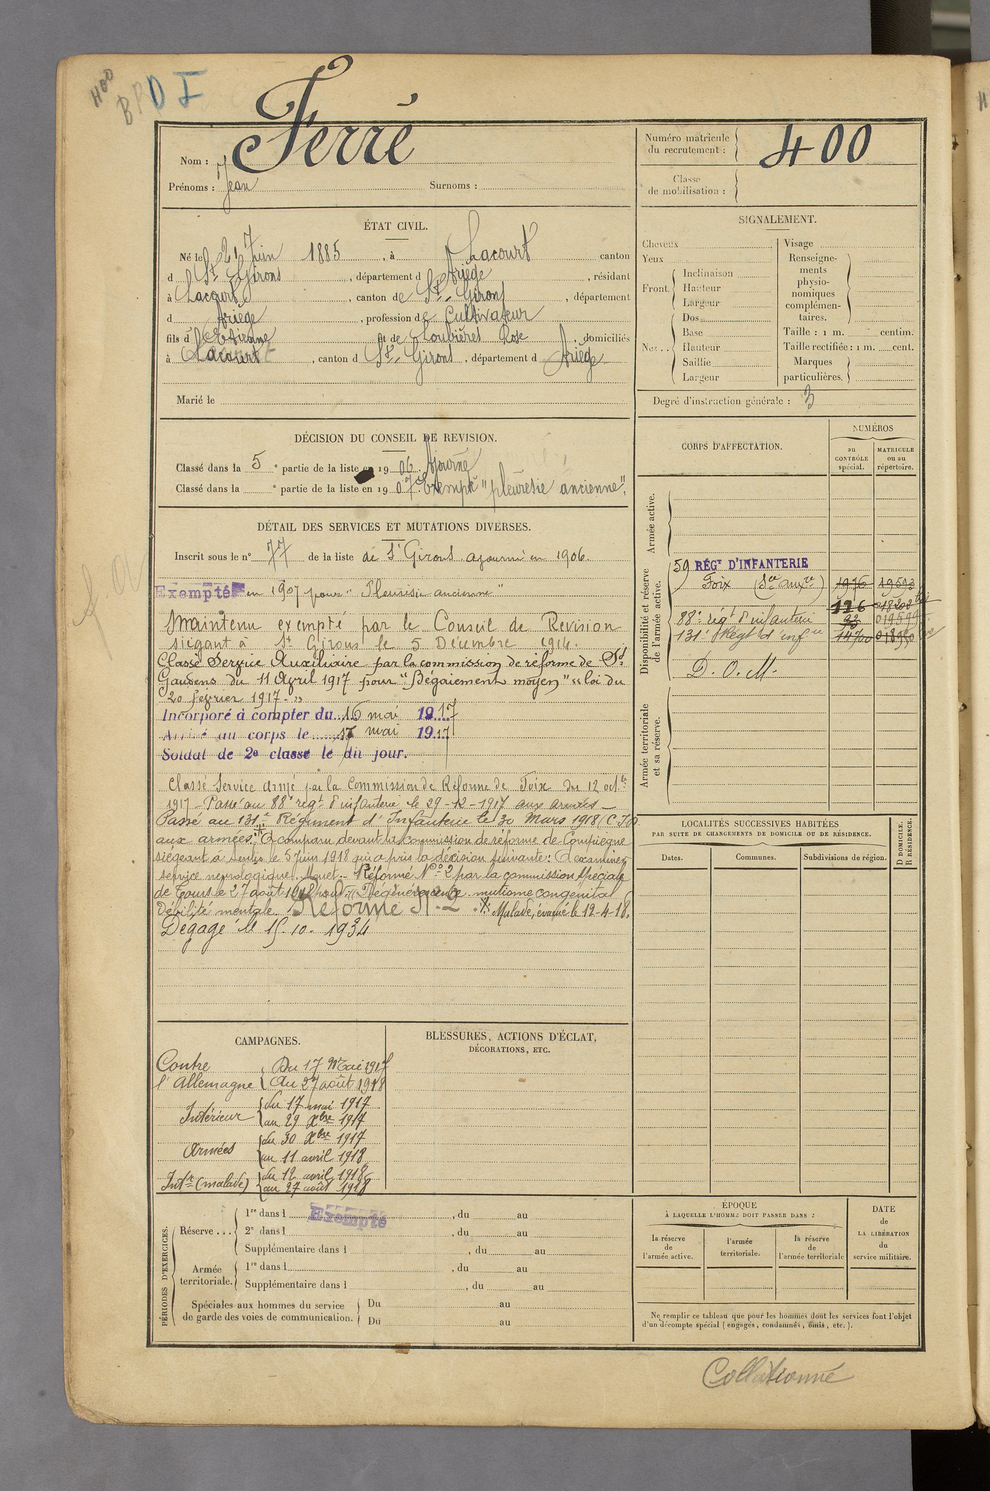 400
BPDI
Nom : Ferré
Prénoms : Jean Surnoms :
Numéro matricule du recrutement : 400
Classe de mobilisation :
ÉTAT CIVIL.
Né le 21 Juin 1885, à Lacourt canton
d St Girons, département d Ariège, résidant
à Lacourt, canton de St-Girons, département
d Ariège, profession de Cultivateur
fils d'Etienne et de Loubières Rose, domiciliés
à Lacourt, canton d St-Girons, département d Ariège
Marié le
SIGNALEMENT.
Cheveux
Yeux
Front. Inclinaison
Hauteur
Largeur
Nez.. Dos
Base
Hauteur
Saillie
Largeur
Visage
Renseignements physionomiques complémentaires.
Taille : 1 m. centim.
Taille rectifiée : 1 m. cent.
Marques particulières.
Degré d'instruction générale : 3
DÉCISION DU CONSEIL DE REVISION.
Classé dans la 5e partie de la liste en 1906. Ajourné
Classé dans la e partie de la liste en 1907. Exempté "pleurésie ancienne".
DÉTAIL DES SERVICES ET MUTATIONS DIVERSES.
Inscrit sous le n° 77 de la liste de St Girons ajourné en 1906.
Exempté en 1907 pour "Pleurésie ancienne"
Maintenu exempté par le Conseil de Revision
siégant à St Girons le 5 Décembre 1914.
Classé Service Auxiliaire par la commission de réforme de St
Gaudens du 11 Avril 1917 pour "Bégaiement moyen" loi du
20 février 1917.
Incorporé à compter du 16 mai 1917
Arrivé au corps le 17 mai 1917
Soldat de 2e classe le dit jour.
Classé Service armé par la Commission de Réforme de Foix du 12 octbre
1917 - Passé au 88e régt d'infanterie le 29-12-1917 aux armées -
Passé au 131e Régiment d'Infanterie le 30 Mars 1918
aux armées. A comparu devant la commission de réforme de Compiègne
siégeant à Senlis le 5 Juin 1918 qui a pris la décision suivante : A examiner
service neurologique. - Réformé N° 2 par la commission spéciale
de Tours le 27 août 1918 pour Dégénérescence mutisme congénital
Débilité mentale. Réformé N° 2. Malade, évacué le 12-4-18.
Dégagé le 15.10.1934
CORPS D'AFFECTATION.
NUMÉROS
au CONTRÔLE spécial.
MATRICULE ou au répertoire.
Armée active.
Disponibilité et réserve de l'armée active.
59 RÉGt D'INFANTERIE
Foix (Sce auxre)
88e régt d'infanterie
131e Régt d'infie
D. O. M.
Armée territoriale et sa réserve.
LOCALITÉS SUCCESSIVES HABITÉES
PAR SUITE DE CHANGEMENTS DE DOMICILE OU DE RÉSIDENCE.
Dates. Communes. Subdivisions de région. D. DOMICILE. R. RÉSIDENCE.
CAMPAGNES.
Contre l'Allemagne Du 17 Mai 1917
Au 27 août 1918
Intérieur du 17 mai 1917
au 29 Xbre 1917
Armées du 30 Xbre 1917
au 11 avril 1918
Intr (malade) du 12 avril 1918
au 27 août 1918
BLESSURES, ACTIONS D'ÉCLAT,
DÉCORATIONS, ETC.
PÉRIODES D'EXERCICES.
Réserve ... 1re dans l Exempté, du au
2e dans l, du au
Supplémentaire dans l, du au
Armée territoriale. 1re dans l, du au
Supplémentaire dans l, du au
Spéciales aux hommes du service
de garde des voies de communication. Du au
Du au
ÉPOQUE
À LAQUELLE L'HOMME DOIT PASSER DANS :
la réserve de l'armée active.
l'armée territoriale.
la réserve de l'armée territoriale
DATE de LA LIBÉRATION du service militaire.
Ne remplir ce tableau que pour les hommes dont les services font l'objet
d'un décompte spécial (engagés, condamnés, omis, etc.).
Collationné